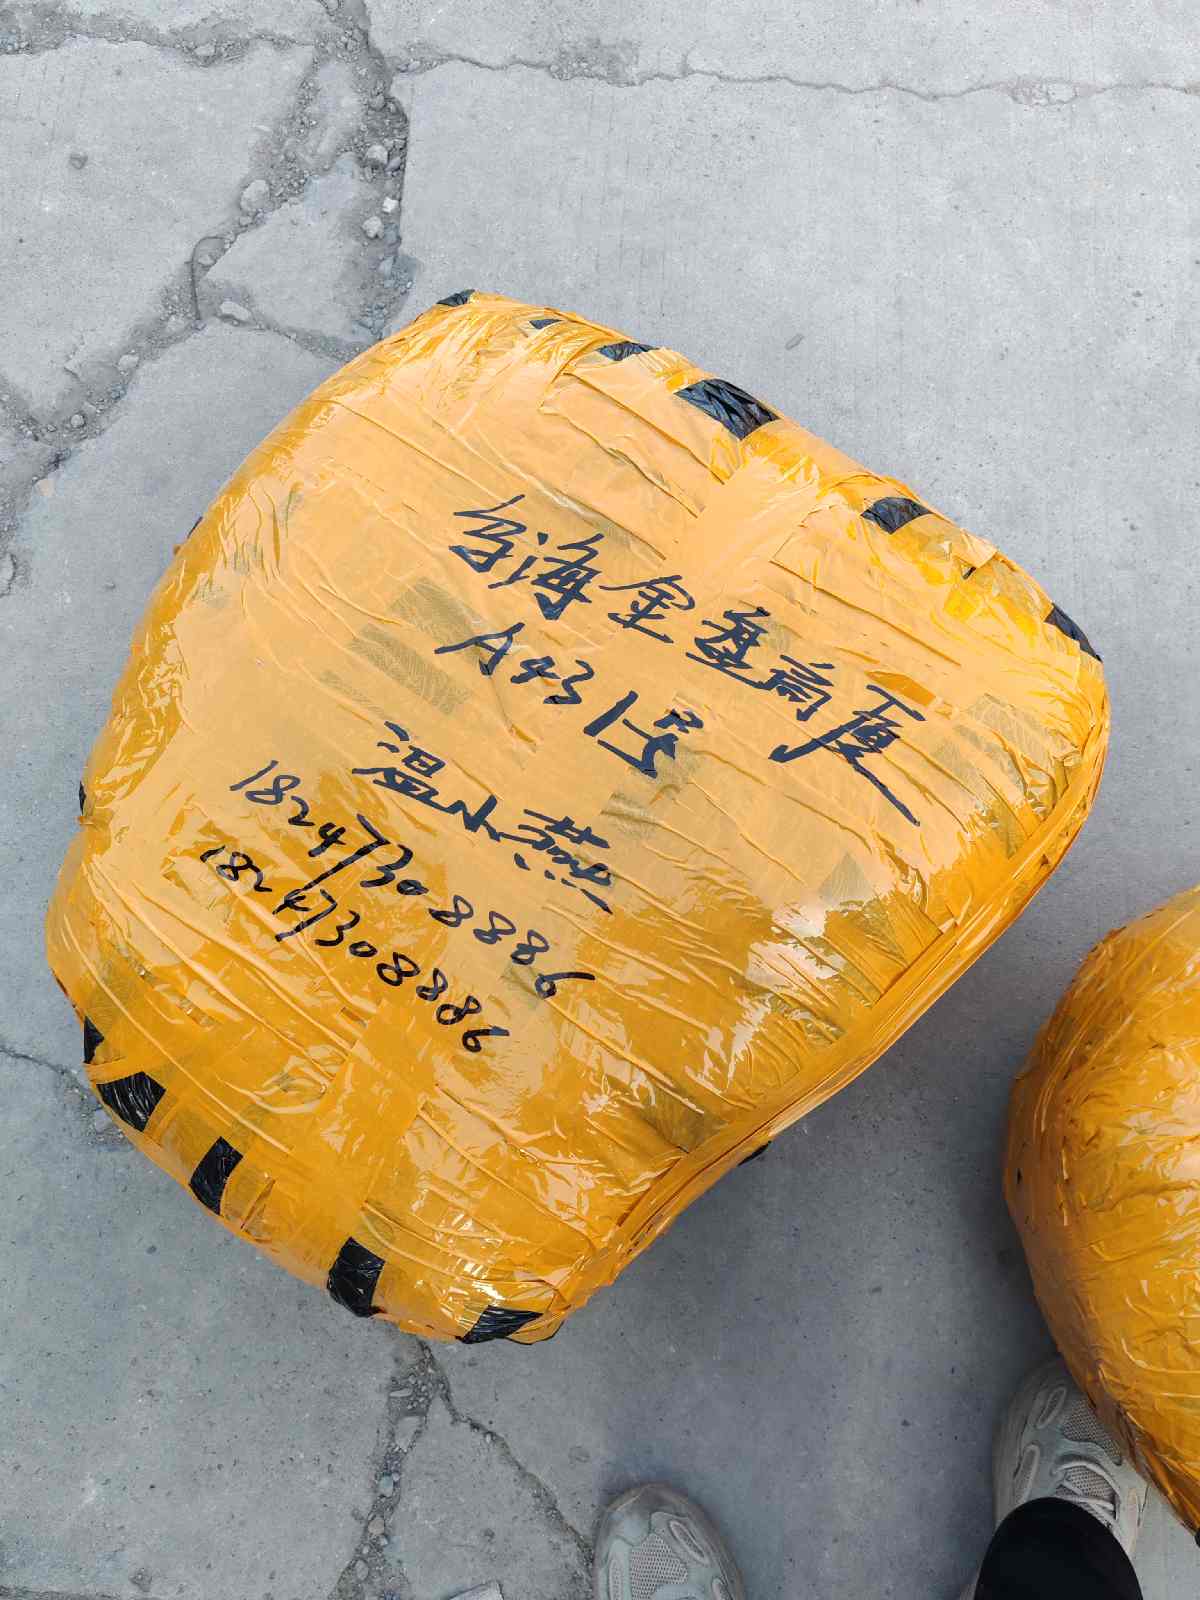 台海金基高厦
A931号
温小燕
18247308886
18247308886